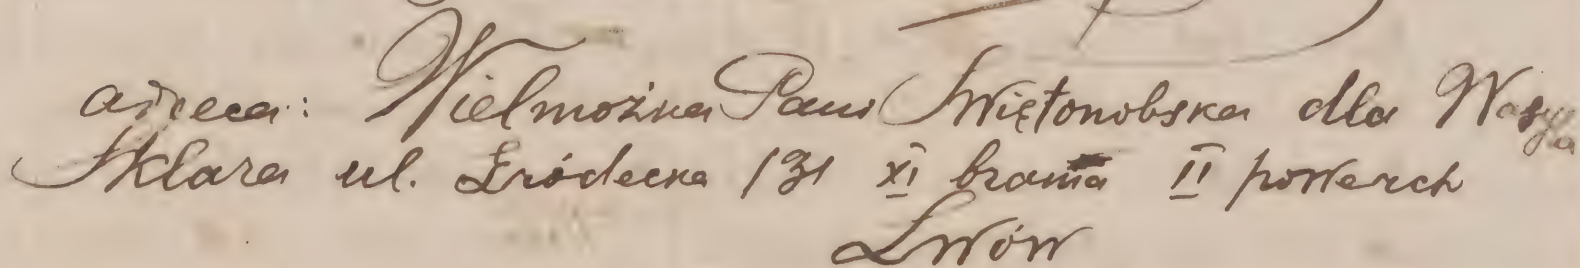 adreca: Wielmożna Pani Świętonobska dla Wasyla
Sklara ul. Źródecka 131 XI brama II powerch
Lwów